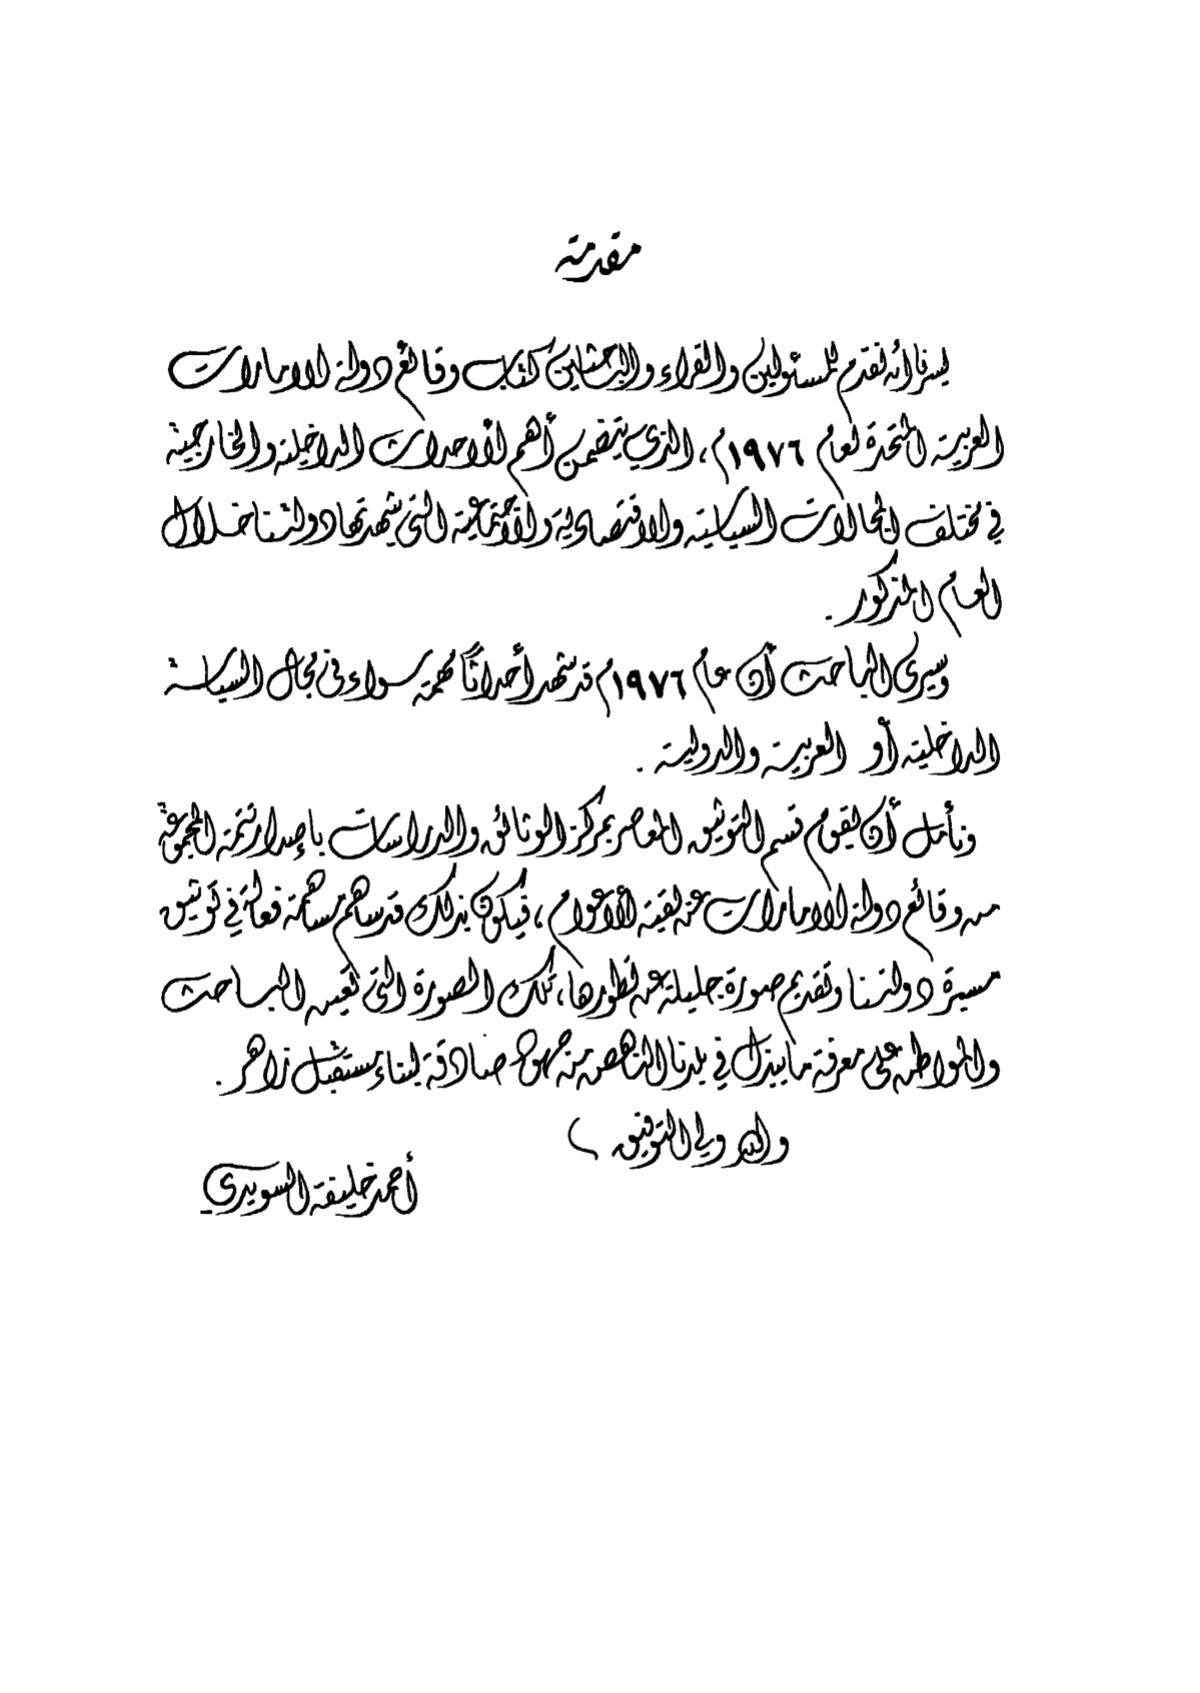 مقدمة
يسرنا أن نقدم للمسئولين والقراء والباحثين كتاب وقائع دولة الامارات
العربية المتحدة لعام ١٩٧٦م، الذي يتضمن أهم الأحداث الداخلية والخارجية
في مختلف المجالات السياسية والاقتصادية والاجتماعية التي شهدتها دولتنا خلال
العام المذكور .
وسيرى الباحث أن عام ١٩٧٦م قد شهد أحداثاً مهمة سواء في مجال السياسة
الداخلية أو العربية والدولية .
ونأمل أن يقوم قسم التوثيق المعاصر بمركز الوثائق والدراسات بإصدار تتمة المجموعة
من وقائع دولة الامارات عن بقية الأعوام، فيكون بذلك قد ساهم مساهمة فعالة في توثيق
مسيرة دولتنا وتقديم صورة جليلة عن تطورها، تلك الصورة التي تعين الباحث
والمواطن على معرفة ما يبذل في بلدنا الناهض من جهود صادقة لبناء مستقبل زاهر .
والله ولي التوفيق ،
أحمد خليفة السويدي